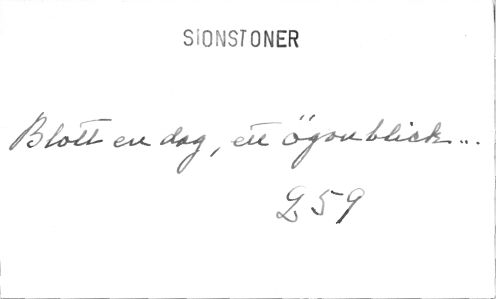 SIONSTONER
Blott en dag, ett ögonblick...
L 59